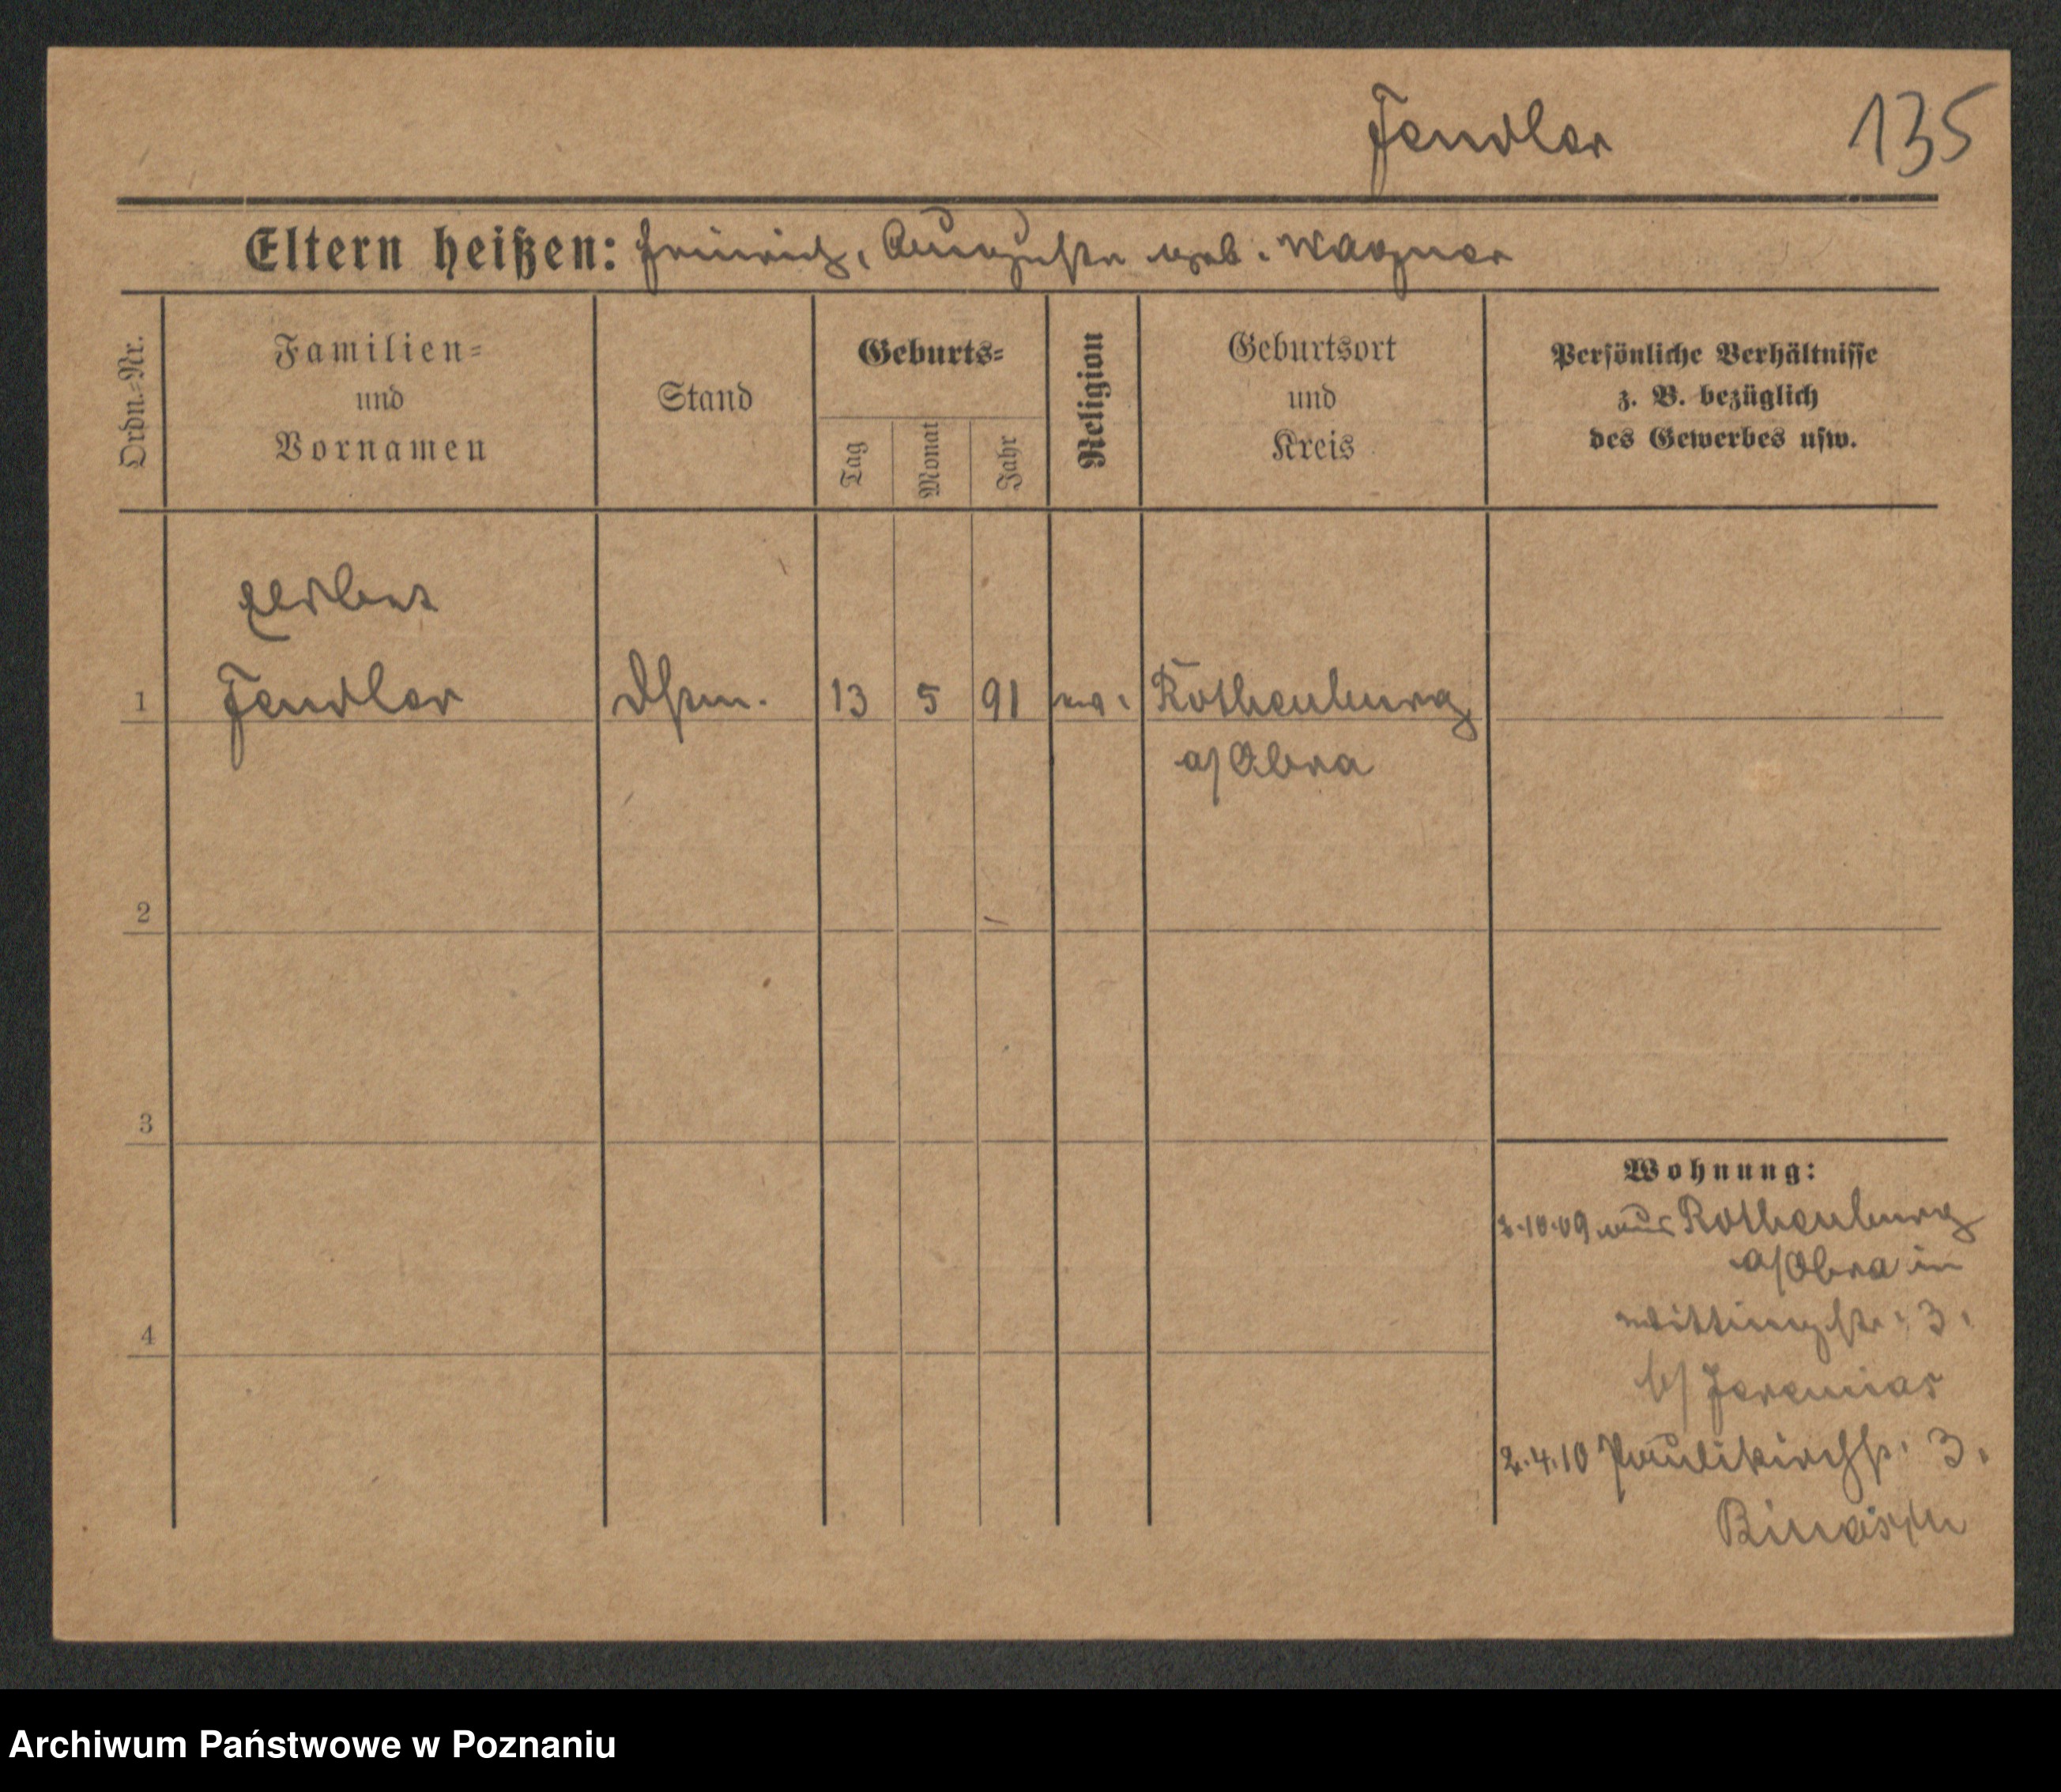 Fendler 135
Eltern heißen: Heinrich, Auguste geb. Wagner
Ordn.-Nr.
Familien-
und
Vornamen
Stand
Geburts-
Tag
Monat
Jahr
Religion
Geburtsort
und
Kreis
Persönliche Verhältnisse
z. B. bezüglich
des Gewerbes usw.
1 Fendler 13 5 91 Rothenburg
a/Obra
2
3
4
Wohnung:
10.09 aus Rothenburg
a/Obra in
3.
b/ Jeremias
2.4.10 Paulikirchstr. 3.
Archiwum Państwowe w Poznaniu